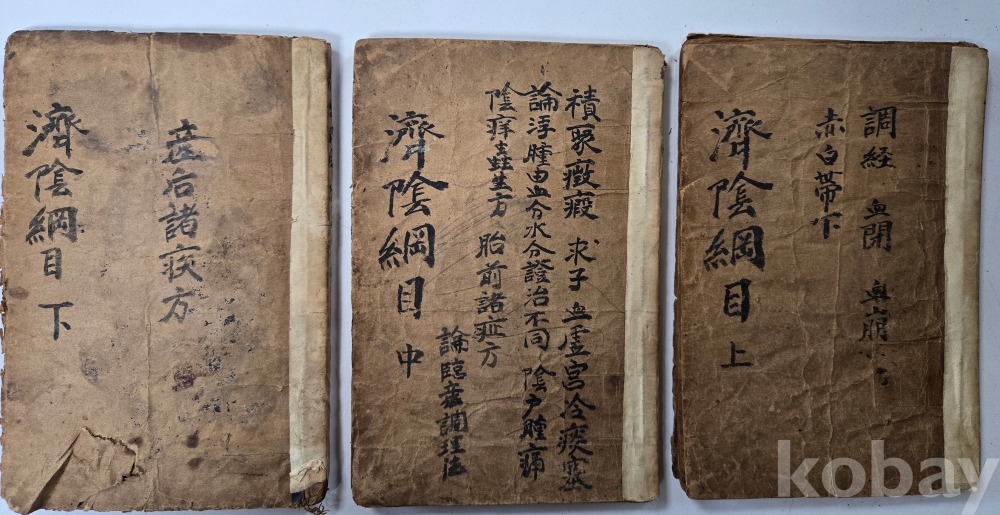 調経 血閉 血崩
赤白帶下
濟陰綱目 上
積聚癥瘕 求子 血虛宮冷
論浮腫由血分水分證治不同 陰戶腫痛
陰痒蟲生方 胎前諸症方
論臨產調理法
濟陰綱目 中
産后諸疾方
濟陰綱目 下
kobay